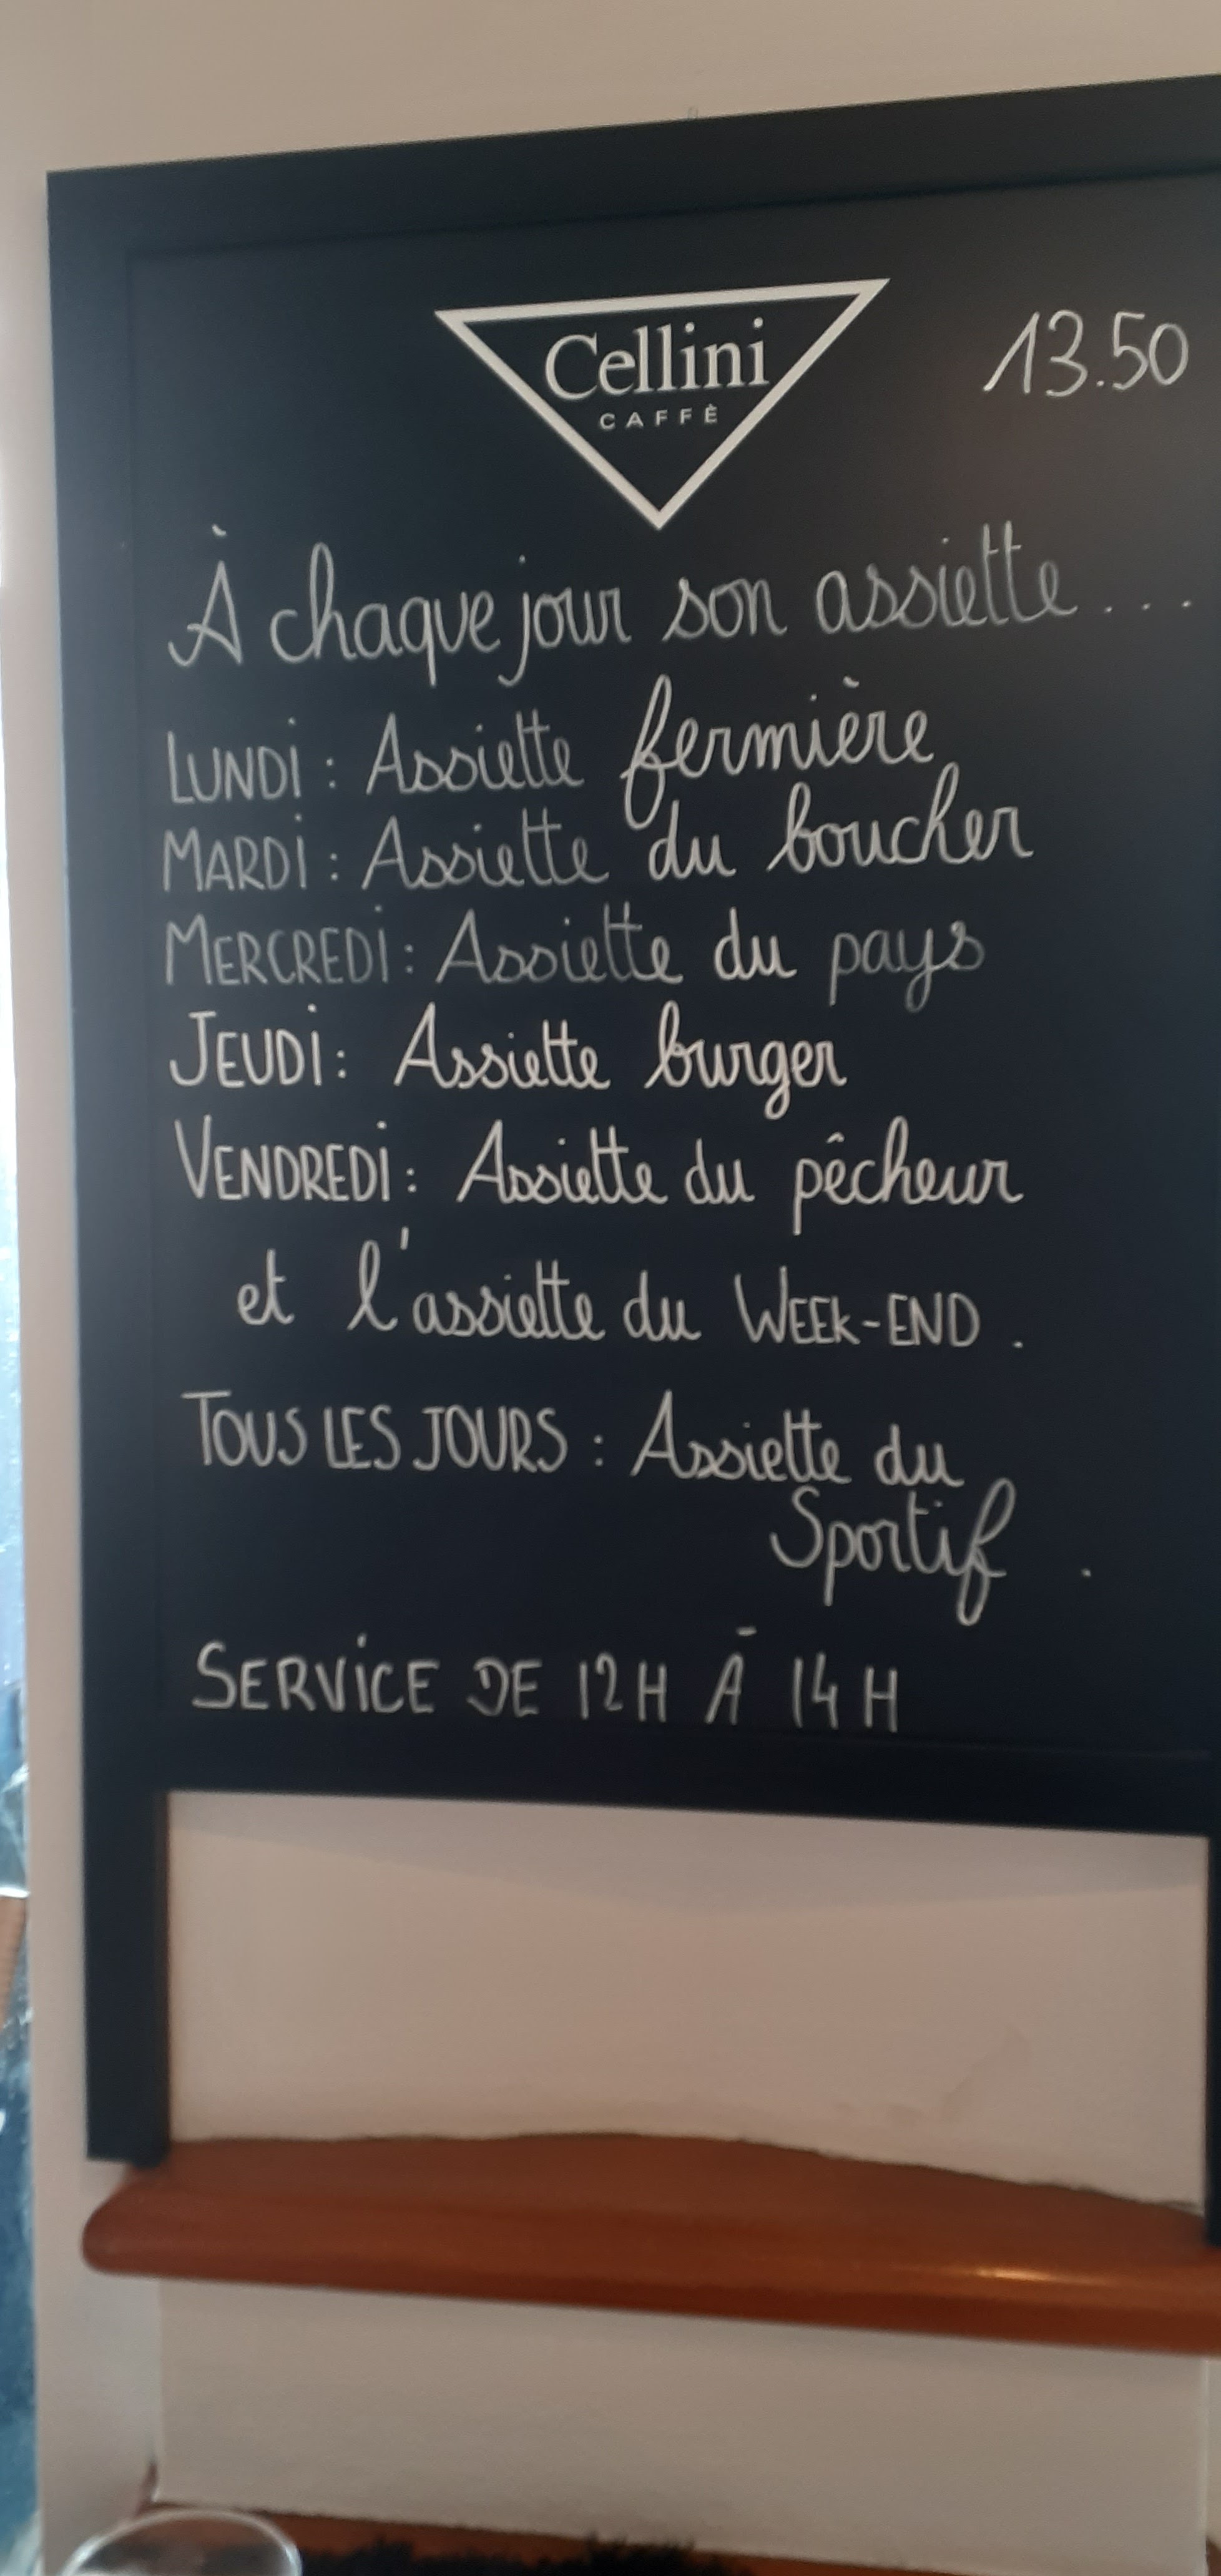 Cellini
CAFFÈ
13.50
À chaque jour son assiette....
LUNDI : Assiette fermière
MARDI : Assiette du boucher
MERCREDI : Assiette du pays
JEUDI : Assiette burger
VENDREDI : Assiette du pêcheur
et l'assiette du WEEK-END .
TOUS LES JOURS : Assiette du
Sportif .
SERVICE DE 12H À 14H